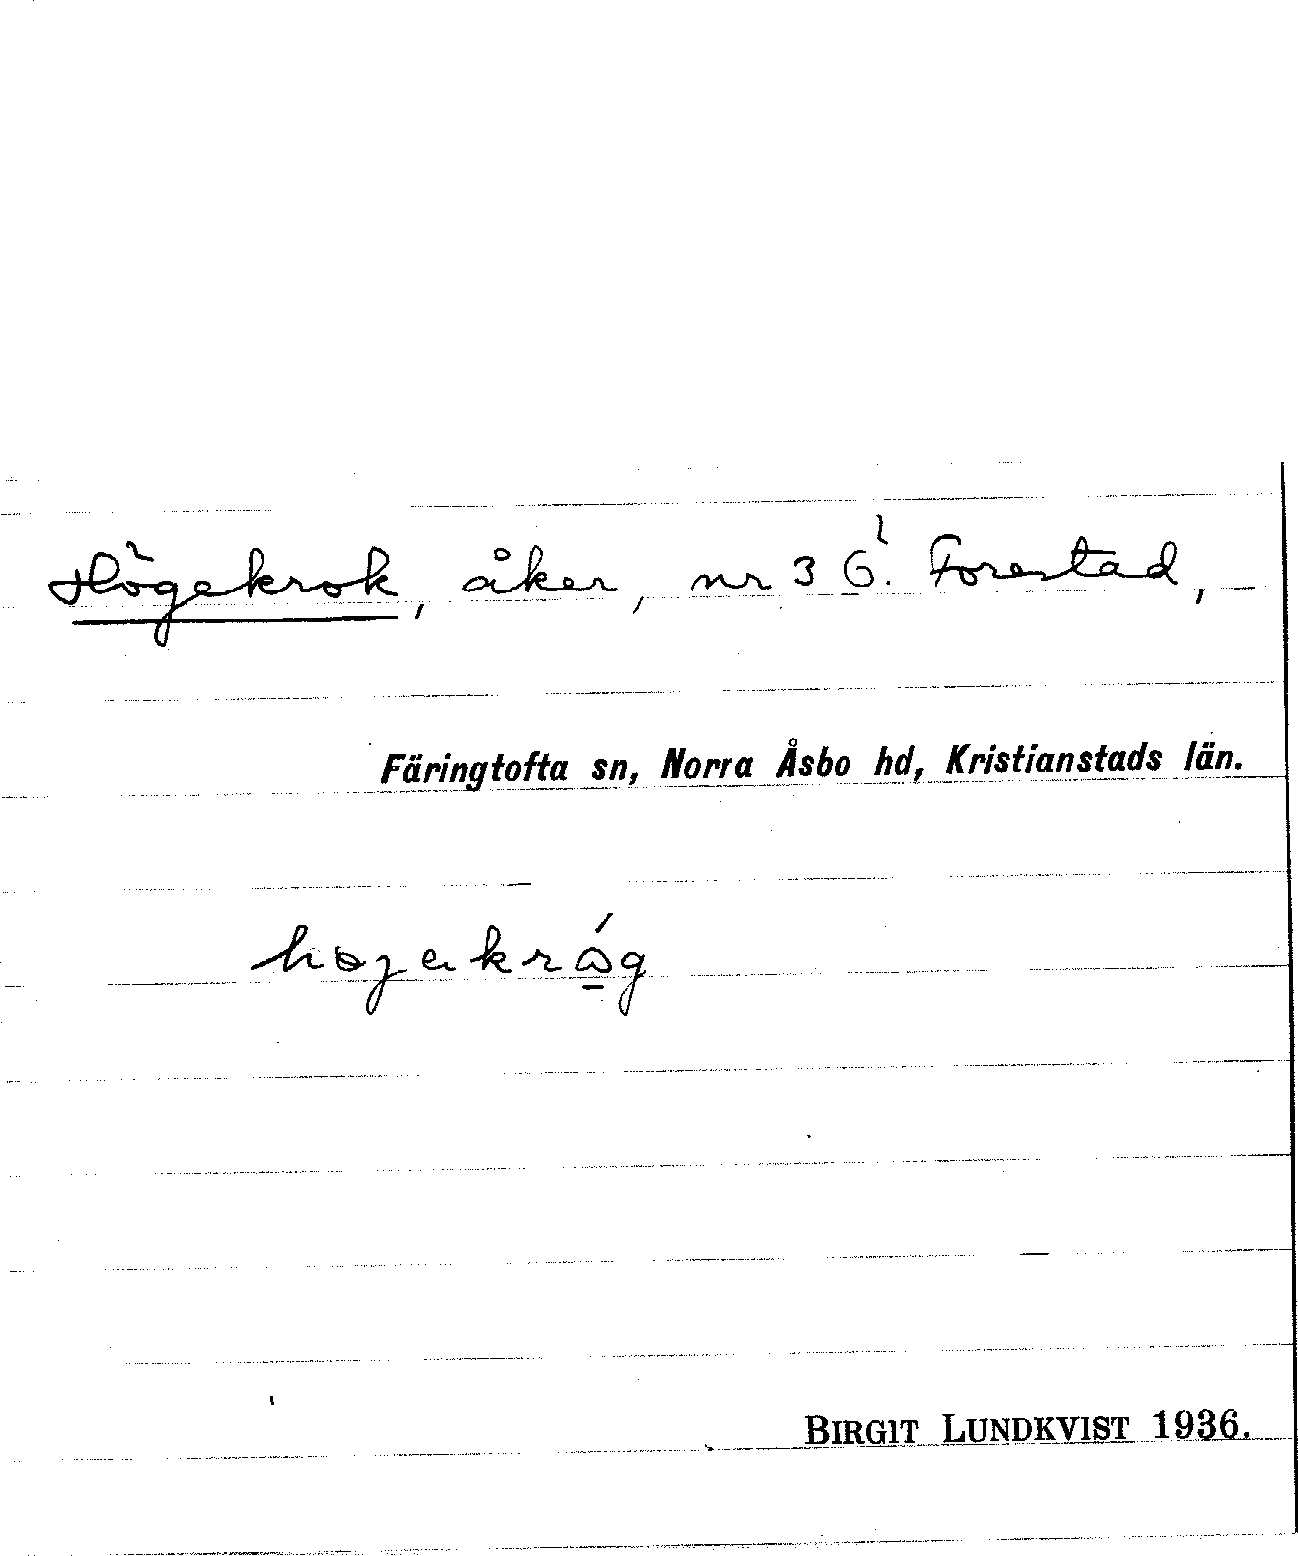 Högekrok, åker, nr 3 G. Forestad, –
Färingtofta sn, Norra Åsbo hd, Kristianstads län.
BIRGIT LUNDKVIST 1936.